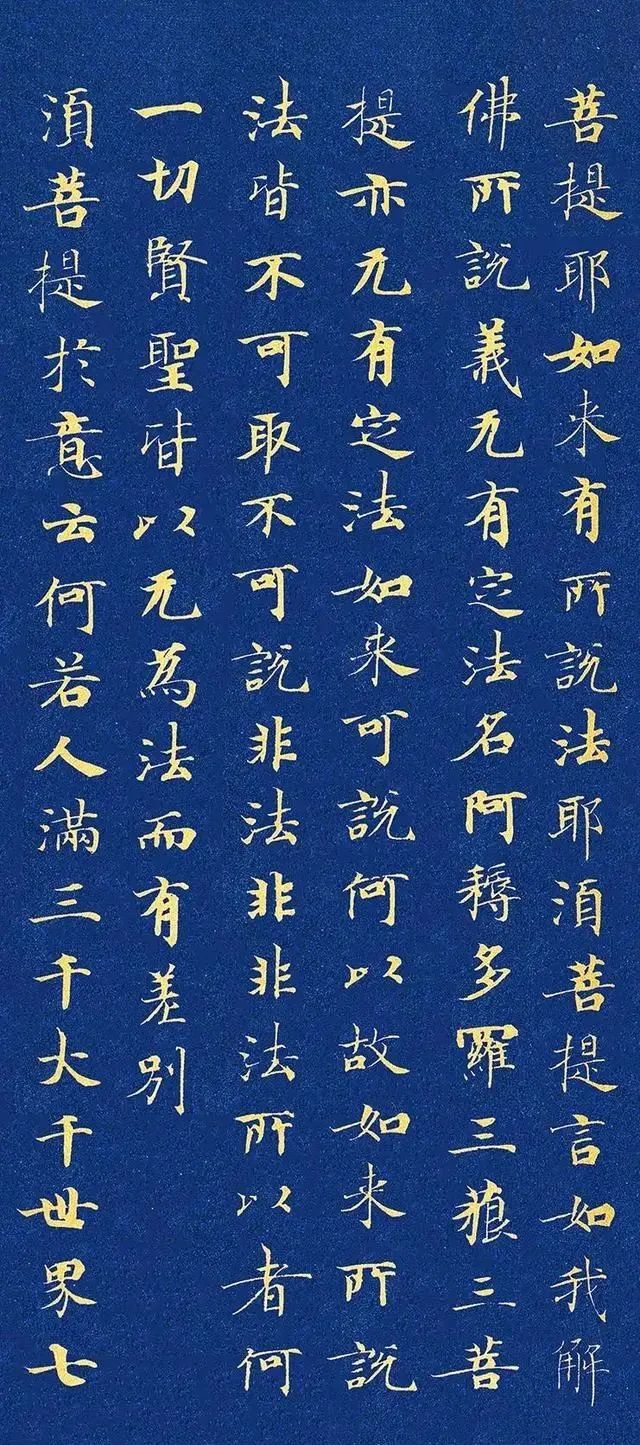 菩提耶如来有所說法耶湏菩提言如我解
佛所說義无有定法名阿耨多羅三藐三菩
提亦无有定法如来可說何以故如来所說
法皆不可取不可說非法非非法所以者何
一切賢聖皆以无為法而有差別
湏菩提於意云何若人滿三千大千世界七